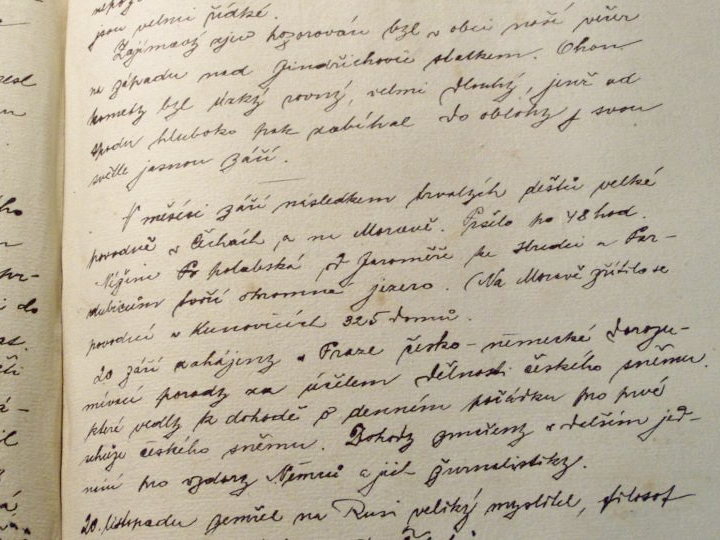 jsou velmi řídké.
Zajímavý zjev pozorován byl v obci naší večer
na západu nad Jindřichovic statkem. Chon
komety byl úzký rovný, velmi dlouhý, jenž od
spodu hluboko pak zabíhal do oblohy svou
světle jasnou září.
V měsíci září následkem trvalých dešťů velké
povodně v Čechách a na Moravě. Pršelo po 48 hod.
Nížina Polabská od Jaroměře ke Hradci a Par-
dubicům tvoří ohromné jezero. (Na Moravě zřítilo se
povodní v Kunovicích 325 domů.
20 září zahájeny v Praze česko-německé dorozu-
mívací porady za účelem dělnosti českého sněmu.
které vedly k dohodě o denním pořádku pro prvé
schůze českého sněmu. Dohody zmařeny v delším jed-
nání pro vzdory Němců a jich žurnalistiky.
20. listopadu zemřel na Rusi veliký myslitel, filosof